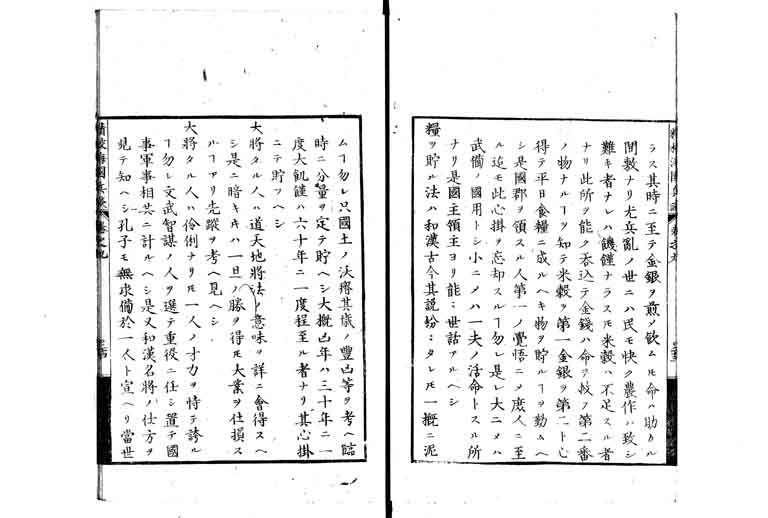 ラス其時ニ至テ金銀ヲ煎ノ飲ムモ命ハ助カル
間敷ナリ尤兵亂ノ世ニハ民モ快ク農作ハ致シ
難キ者ナレハ饑饉ナラスモ米穀ハ不足スル者
ナリ此所ヲ能ク呑込テ金錢ハ命ヲ救フ第二番
ノ物ナルヿヲ知テ米穀ヲ第一金銀ヲ第二ト心
得テ平日食糧ニ成ルヘキ物ヲ貯ルヿヲ勤ムヘ
シ是國郡ヲ領スル人第一ノ覺悟ニメ庶人ニ至
ル迄モ此心掛ヲ忘却スルヿ勿レ是レ大ニメハ
武備ノ國用トシ小ニメハ一夫ノ活命トスル所
ナリ是國主領主ヨリ能々世話アルヘシ
糧ヲ貯ル法ハ和漢古今其説紛々タレモ一概ニ泥
ムヿ勿レ只國土ノ沃瘠其歳ノ豐凶等ヲ考ヘ臨
時ニ分量ヲ定テ貯ヘシ大概凶年ハ三十年ニ一
度大飢饉ハ六十年ニ一度程至ル者ナリ其心掛
ニテ貯フヘシ
大將タル人ハ道天地將法ノ意味ヲ詳ニ會得スヘ
シ是ニ暗キ片ハ一旦ノ勝ヲ得モ大業ヲ仕損ス
ルヿアリ先蹤ヲ考ヘ見ヘシ
大將タル人ハ伶俐ナリモ一人ノ才力ヲ恃テ誇ル
ヿ勿レ文武智謀ノ人ヲ選テ重役ニ任シ置テ國
事軍事相共ニ計ルヘシ是又和漢名將ノ仕方ヲ
見テ知ヘシ孔子モ無求備於一人ト宣ヘリ當世
精校海國兵談 卷之九